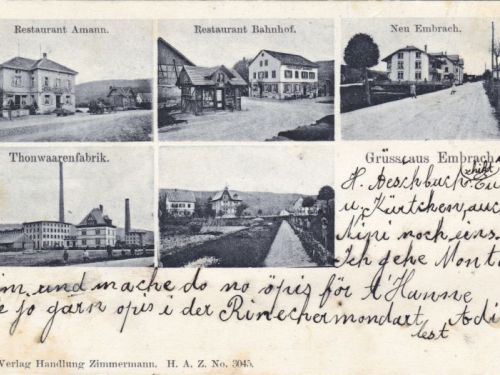 Restaurant Amann.
Restaurant Bahnhof.
Neu Embrach.
Thonwaarenfabrik.
Gruss aus Embrach
H. Aeschbach
u. Kärtchen, auch
Mini noch eins.
Ich gehe Mont
im und mache do no öpis för d'Hanne
jo gärn opis i der Rinechermondart Adi
lest
Verlag Handlung Zimmermann. H. A. Z. No. 3045.